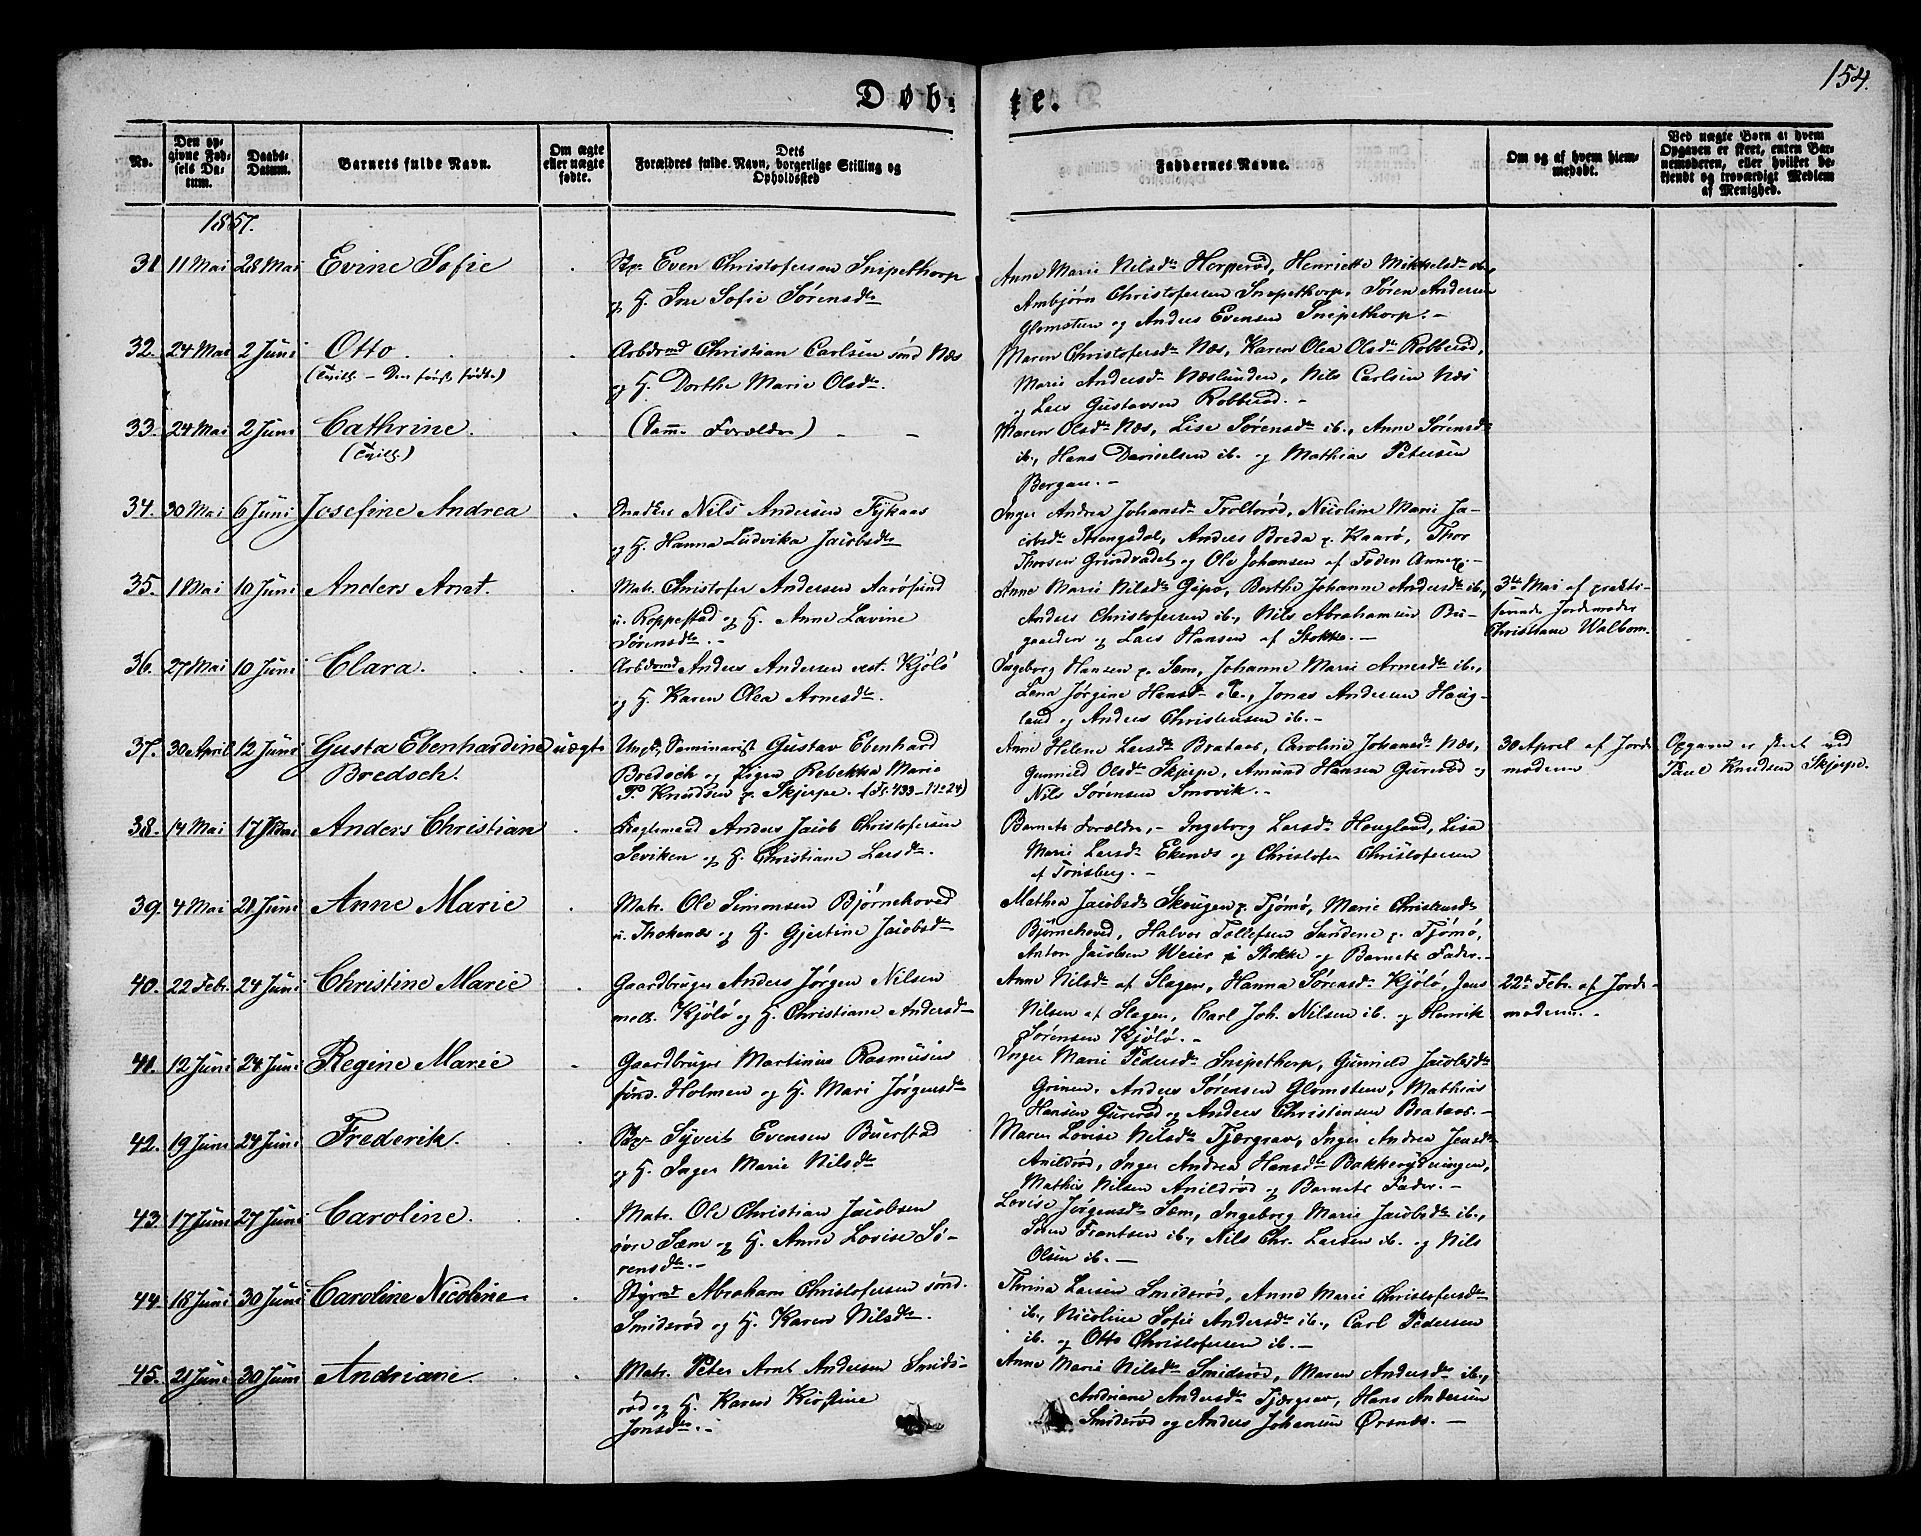 154.
Døb- te.
No.
Den op-
givne Fød-
sels Da-
tum.
Daabs-
Datum.
Barnets fulde Navn.
Om ægte
eller uægte
fødte.
Dets
Forældres fulde Navn, borgerlige Stilling og
Opholdssted
Faddernes Navne.
Om og af hvem hjem-
medøbt.
Ved uægte Børn at hvem
Opgaven er skeet, enten Bar-
nemoderen, eller hvilket be-
kjendt og troværdigt Medlem
af Menighed.
1857.
31 11 Mai 28 Mai Evine Sofie . Even Christofersen Snipethorp
og H. Ine Sofie Sørensdtr
Anne Marie Nilsdtr Herperød, Henriette Mikkelsdtr ib.,
Ambjörn Christofersen Snipethorp, Søren Andersen
Glomsten og Anders Evensen Snipethorp. -
32. 24 Mai 2 Juni Otto . Arbdrmd Christian Carlsen sönd Næs
(Tvill. - Den först födte)
og H. Dorthe Marie Olsdtr.
Maren Christofersdtr Næs, Karen Olea Olsdtr Robberød,
Marie Andersdtr Næslunden, Nils Carlsen Næs
og Lars Gustavsen Robberød. -
33. 24 Mai 2 Juni Cathrine. . (Samme Forældre) - -
(Tvill.)
Maren Olsdtr Næs, Lise Sørensdtr ib., Anne Sørensdtr
ib., Hans Danielsen ib. og Mathias Petersen
Bergan. -
34. 30 Mai 6 Juni Josefine Andrea . Nils Andersen
og H. Hanna Ludvika Jacobsdtr
Inger Andrea Johansdtr Troltorød, Nicoline Marie Ja-
cobsdtr, Anders Breda p. Kaarø, Thor
Thorsen Grindvadet og Ole Johansen af Annex. -
35. 1 Mai 10 Juni Anders Arnt. . Matr. Christofer Andersen Aarøsund
u. Roppestad og H. Anne Lavine
Sørensdtr. -
Anne Marie Nilsdtr Gipø, Berthe Johanne Andersdtr ib.,
Anders Christofersen ib., Nils Abrahamsen Bu-
gaarden og Lars Hansen af Stokke. -
3die Mai af prakti-
serende Jordemoder
Christiane Walbom.
36. 27 Mai 10 Juni Clara. . Arbdrmd Anders Andersen vest. Kjöló
og H. Karen Olea Arnesdtr.
Ingeborg Hansen p. Sem, Johanne Marie Arnesdtr ib.,
Lena Jørgine Hansdtr ib., Jonas Andersen Haug-
land og Anders Christensen ib. -
37. 30 April 12 Juni Gusta Ebenhardine uægte Ungk. Seminarist Gustav Ebenhard
Bredsch.
Bredsch og Pigen Rebekka Marie
P. Knudsen p. Skjerpe. (fl. 433 - No 24)
Anne Helene Larsdtr Brataas, Caroline Johansdtr Næs,
Gunnild Olsdtr Skjerpe, Amund Hansen Gurerød og
Nils Sørensen Smovik. -
30 April af Jorde-
moderen
Opgaven er skeet ved
Paul Knudsen Skjerpe.
38. 14 Mai 17 Juni Anders Christian . Anders Jacob Christofersen
Seviken og H. Christiane Larsdtr.
Barnets Forældre, - Ingeborg Larsdtr Hougland, Lisa
Marie Larsdtr Ekenæs og Christofer Christofersen
af Tønsberg. -
39. 4 Mai 21 Juni Anne Marie . Matr. Ole Simonsen Bjørnehoved
u. Thokenæs og H. Gjertine Jacobsdtr
Mathea Jacobsdtr Skougen p. Tjømø, Marie Christensdtr
Bjørnehoved, Halvor Tollefsen Sundene p. Tjømø,
Anton Jacobsen Weier i Stokke og Barnets Fader. -
40. 22 Febr. 24 Juni Christine Marie . Gaardbruger Anders Jørgen Nilsen
mell. Kjöló og H. Christiane Andersdtr
Anne Nilsdtr af Slagen, Hanna Sørensdtr Kjöló, Jens
Nilsen af Slagen, Carl Joh. Nilsen ib. og Henrik
Sørensen Kjöló. -
22de Febr. af Jorde-
moderen. -
41. 12 Juni 24 Juni Regine Marie . Gaardbruger Martinus Rasmusen
sønd. Holmen og H. Mari Jørgensdtr
Inger Marie Pedersdtr Snipethorp, Gunnild Jacobsdtr
Grimen, Anders Sørensen Glomsten, Mathias
Hansen Gurerød og Anders Christensen Brataas. -
42. 19 Juni 24 Juni Frederik. . Syvert Evensen Buerstad
og H. Inger Marie Nilsdtr
Maren Lovise Nilsdtr Tjærgrav, Inger Andrea Jensdtr
Anildrød, Inger Andrea Hansdtr Bakkerydningen,
Mathis Nilsen Anildrød og Barnets Fader. -
43. 17 Juni 27 Juni Caroline. . Matr. Ole Christian Jacobsen
øvre Sæm og H. Anne Lovise Sø-
rensdtr. -
Lovise Jørgensdtr Sæm, Ingeborg Marie Jacobsdtr ib.,
Søren Frantsen ib., Nils Chr. Larsen ib. og Nils
Olsen ib. -
44. 18 Juni 30 Juni Caroline Nicoline . Styrmd Abraham Christofersen sönd.
Smidsrød og H. Karen Nilsdtr.
Thrina Larsen Smidsrød, Anne Marie Christofersdtr
ib., Nicoline Sofie Andersdtr ib., Carl Pedersen
ib. og Otto Christofersen ib. -
45. 21 Juni 30 Juni Andriane. . Matr. Peter Arnt Andersen Smids-
rød og H. Karen Kirstine
Jonsdtr. -
Anne Marie Nilsdtr Smidsrød, Maren Andersdtr ib.,
Andriane Andersdtr Tjærgrav, Hans Andersen
Smidsrød og Anders Johansen Ørsnæs. -